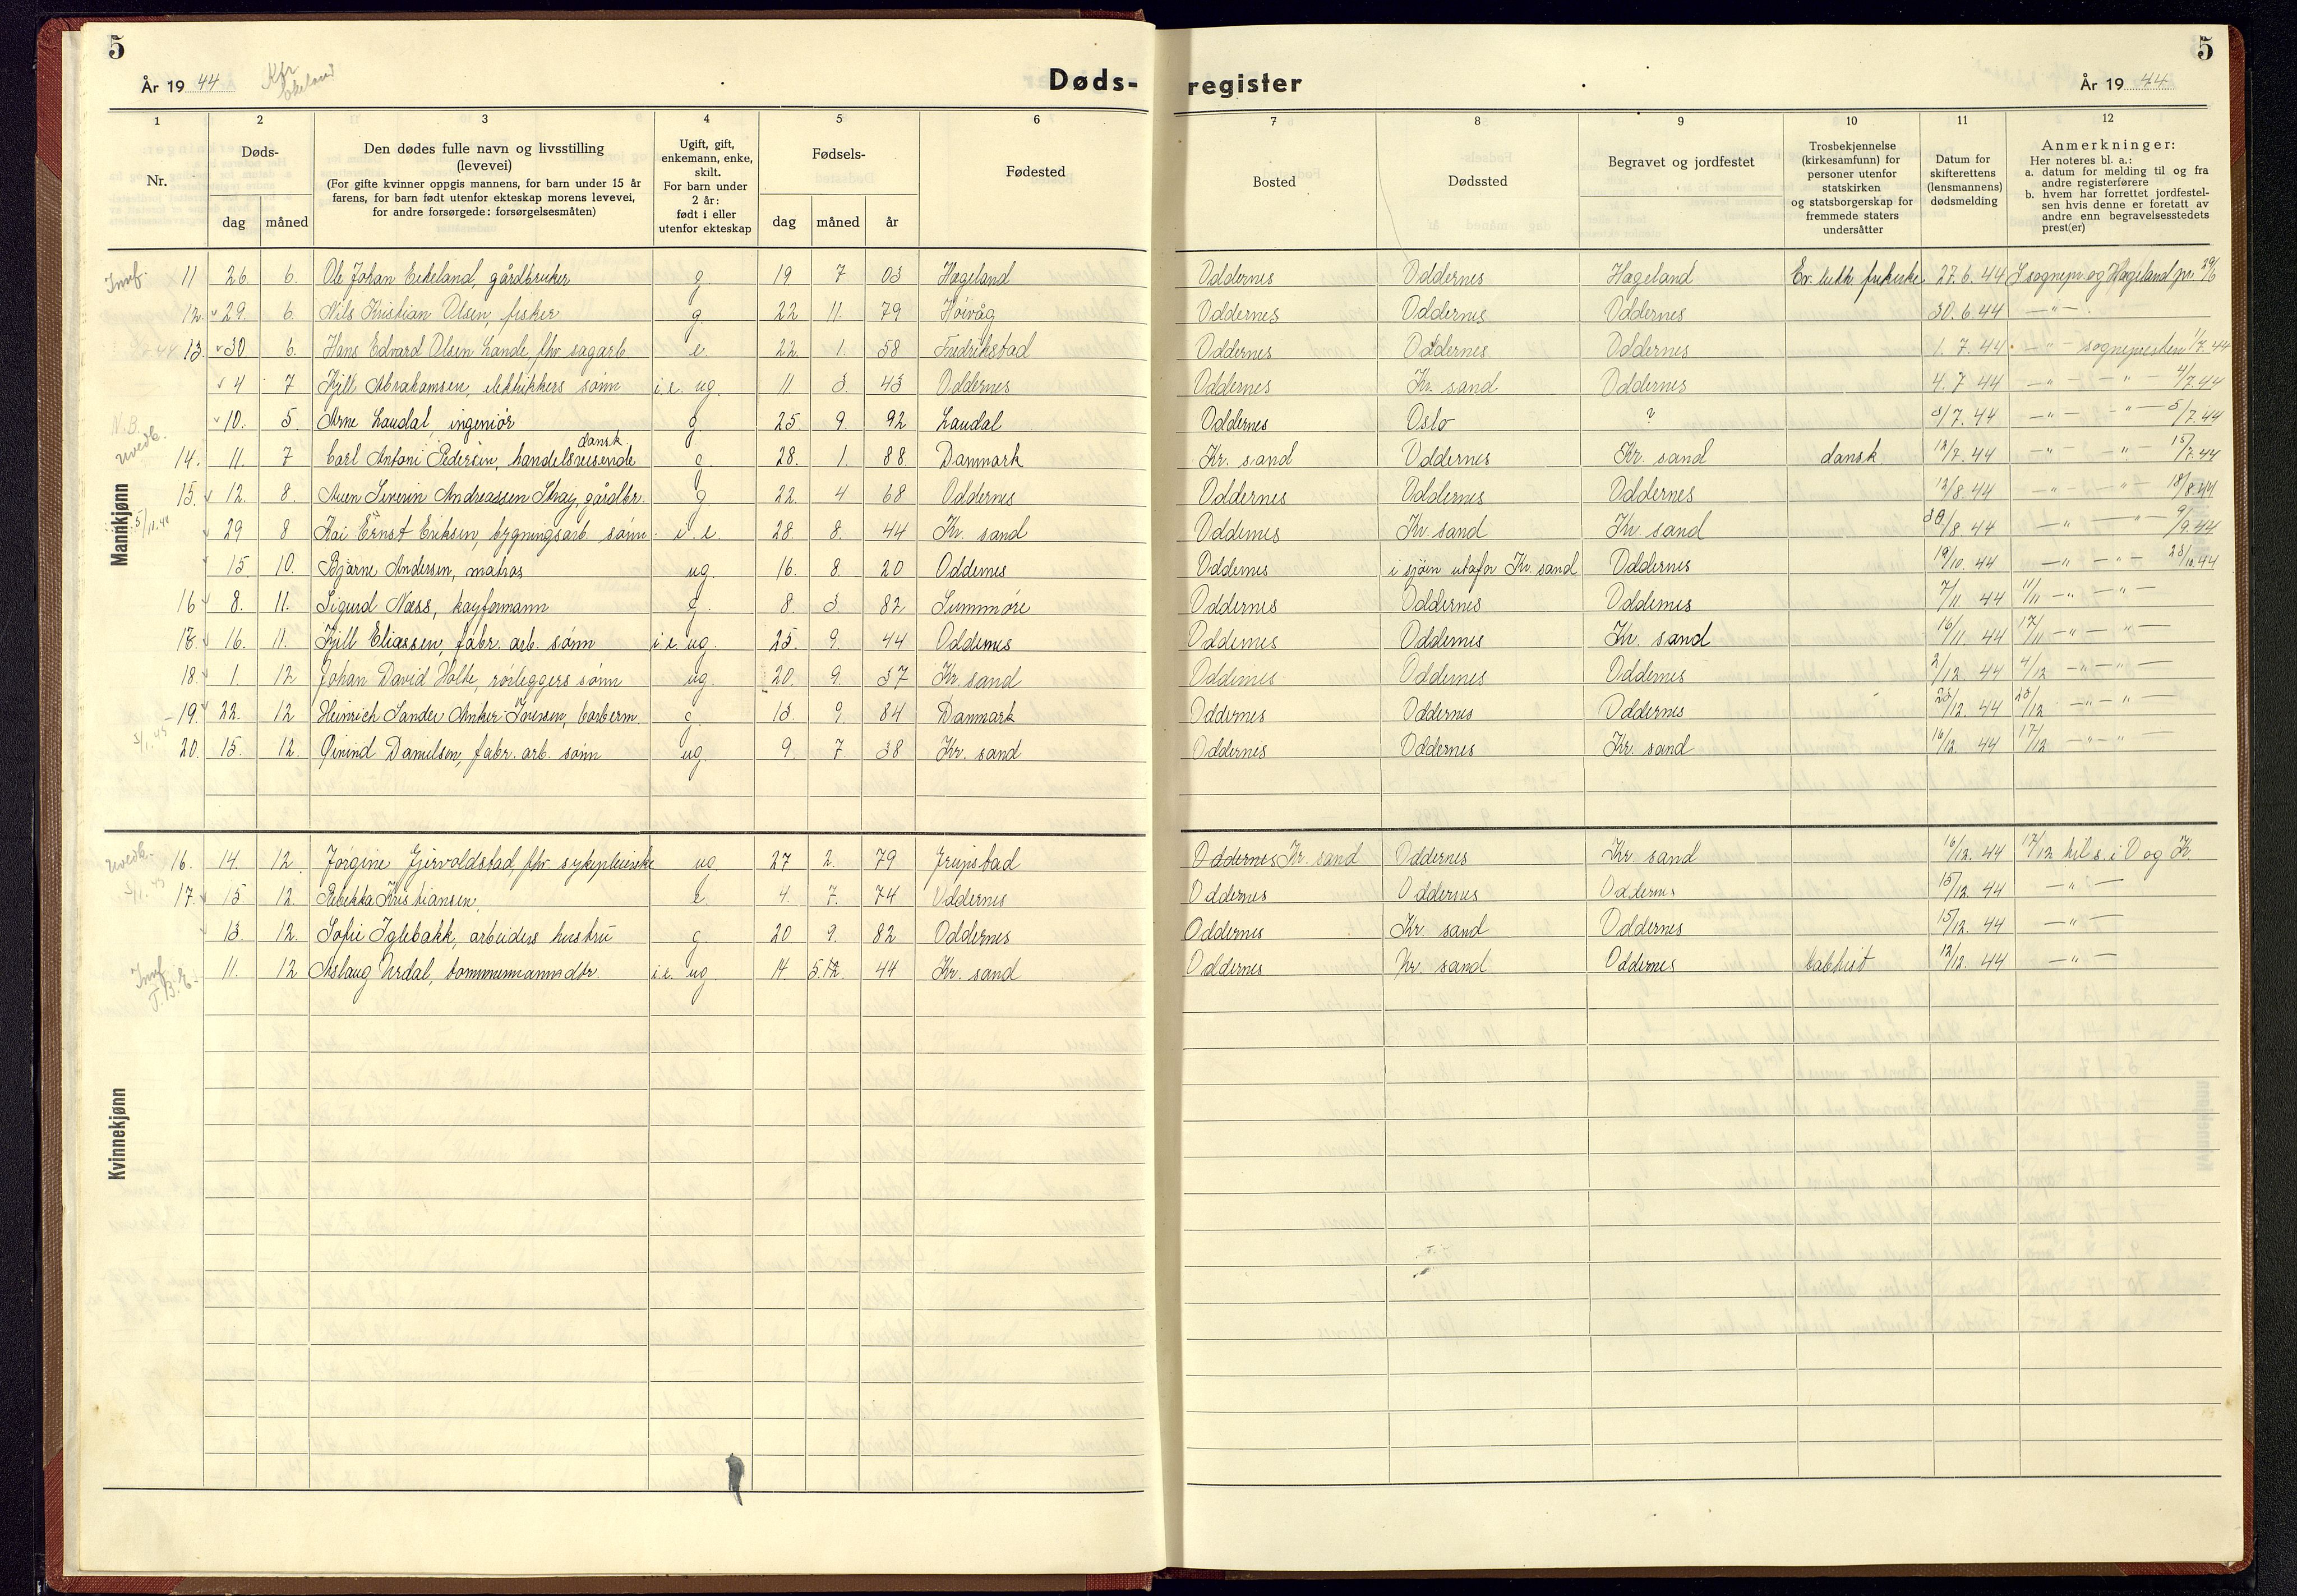 5
År 19 44
Døds-
1 2 3 4 5 6
Nr.
Døds-
dag måned
Den dødes fulle navn og livsstilling
(levevei)
(For gifte kvinner oppgis mannens, for barn under 15 år
farens, for barn født utenfor ekteskap morens levevei,
for andre forsørgede: forsørgelsesmåten)
Ugift, gift,
enkemann, enke,
skilt.
For barn under
2 år:
født i eller
utenfor ekteskap
Fødsels-
dag måned år
Fødested
Mannkjønn
11 26 6. Ole Johan Eikeland, gårdbruker g. 19 7 03 Hægeland
12. 29. 6. Nils Kristian Olsen, fisker g. 22 11. 79 Høivåg
13. 30 6. Hans Edvard Olsen Lande, fhv sagarb. e. 22. 1. 58 Fredrikstad
4 7 Kjell Abrahamsen, elektrikers sønn i.e. ug. 11 3. 43 Oddernes
10. 5. Arne Laudal, ingeniør g. 25. 9. 92 Laudal
dansk.
14. 11. 7 Carl Antoni Pedersen, handelsreisende g 28. 1. 88. Danmark
15. 12. 8. Auen Severin Andreassen Stray, gårdbr. g 22. 4 68 Oddernes
29 8 Kai Ernst Eriksen, bygningsarb. sønn i.e. 28. 8. 44 Kr. sand
15. 10. Bjarne Andersen, matros ug. 16. 8. 20 Oddernes
16 8. 11. Sigurd Næss, kayformann g. 8. 3 82 Sunnmøre
16. 11. Kjell Eliassen, fabr. arb. sønn i.e. ug. 25. 9. 44 Oddernes
18. 1. 12 Johan David Holte, rørleggers sønn ug. 20 9. 37 Kr. sand
19. 22. 12 Heinrich Sander Anker Iversen, barberm. g. 13. 9. 84 Danmark
20. 15. 12. Øivind Danielsen, fabr. arb. sønn ug. 9. 7. 38 Kr. sand
Kvinnekjønn
16. 14. 12. Jørgine Gjervoldstad, fhv sykepleierske ug. 27 2. 79
17. 15 12. Rebekka Kristiansen, e. 4. 7. 74 Oddernes
13. 12. Sofie Iglebækk, arbeiders hustru g. 20 9. 82 Oddernes
11. 12 Aslaug Urdal, tømmermanns dtr. i.e. ug. 14 5.12. 44 Kr. sand
5
register
År 19 44
7 8 9 10 11 12
Bosted
Dødssted
Begravet og jordfestet
Trosbekjennelse
(kirkesamfunn) for
personer utenfor
statskirken
og statsborgerskap for
fremmede staters
undersåtter
Datum for
skifterettens
(lensmannens)
dødsmelding
Anmerkninger:
Her noteres bl. a.:
a. datum for melding til og fra
andre registerførere
b. hvem har forrettet jordfestel-
sen hvis denne er foretatt av
andre enn begravelsesstedets
prest(er)
Oddernes Oddernes Hægeland Ev. luth. frikirke 27.6.44 sognepr. og Hægeland pr. 29/6
Oddernes Oddernes Oddernes 30.6.44 — " —
Oddernes Oddernes Oddernes 1.7.44 — " — sognepresten 1/7.44
Oddernes Kr. sand Oddernes 4.7 44 — " — — " — 4/7.44
Oddernes Oslo ? 3/7.44 — " — " — 5/7.44
Kr. sand Oddernes Kr. sand dansk 12/7.44 — " — " — 15/7.44
Oddernes Oddernes Oddernes 12/8.44 — " — — " — 18/8.44
Oddernes Kr. sand Kr. sand 30/8.44 — " — — " — 9/9.44
Oddernes i sjøen utafor Kr. sand Oddernes 19/10.44 — " — " — 23/10.44
Oddernes Oddernes Oddernes 7/11 44 11/11 — " — " —
Oddernes Oddernes Kr. sand 16/11. 44 17/11 — " — " —
Oddernes Oddernes Oddernes 2/12. 44 4/12 — " — " —
Oddernes Oddernes Oddernes 23/12. 44 23/12 — " — " —
Oddernes Oddernes Kr. sand 16/12. 44 17/12 — " — " —
Oddernes Kr. sand Oddernes Kr sand 16/12. 44 17/12 til s. i O og Kr.
Oddernes Oddernes Oddernes 15/12. 44 — " —
Oddernes Kr. sand Oddernes 15/12. 44 — " —
Oddernes Kr. sand Oddernes 12/12. 44 — " —